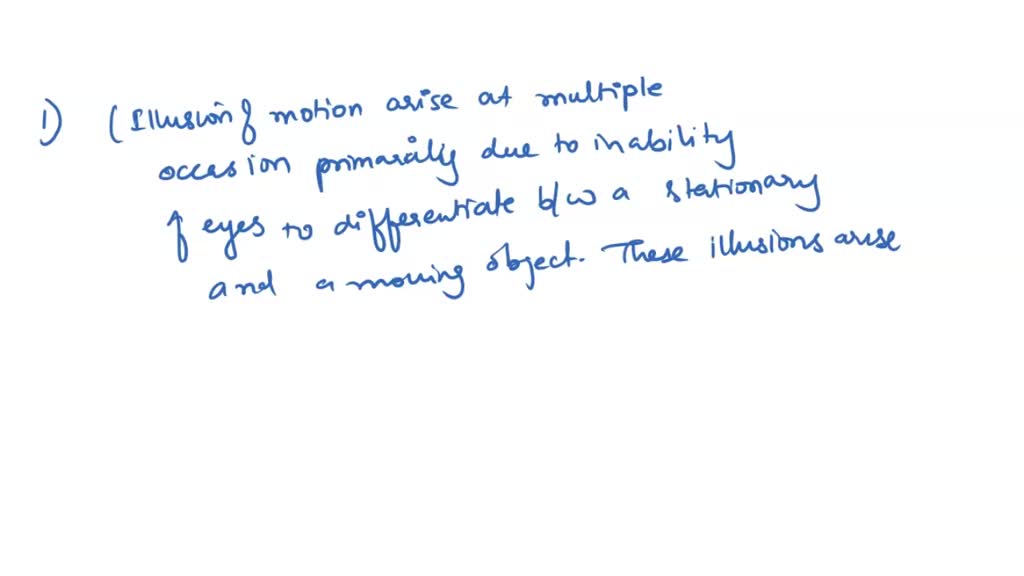 1) (Illusion of motion arise at multiple
occasion primarily due to inability
of eyes to differentiate b/w a stationary
and a moving object. These illusions arise